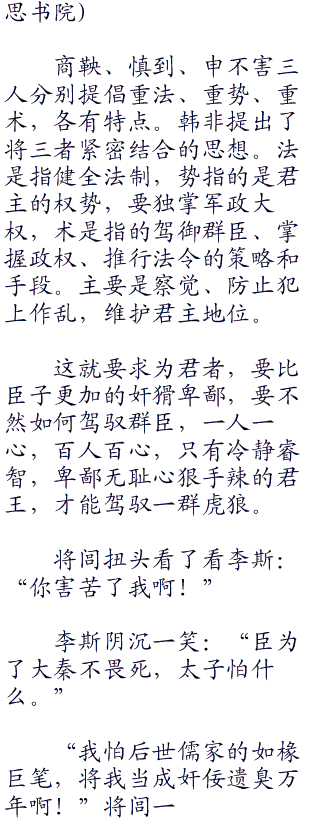 思书院）
商鞅、慎到、申不害三
人分别提倡重法、重势、重
术，各有特点。韩非提出了
将三者紧密结合的思想。法
是指健全法制，势指的是君
主的权势，要独掌军政大
权，术是指的驾御群臣、掌
握政权、推行法令的策略和
手段。主要是察觉、防止犯
上作乱，维护君主地位。
这就要求为君者，要比
臣子更加的奸猾卑鄙，要不
然如何驾驭群臣，一人一
心，百人百心，只有冷静睿
智，卑鄙无耻心狠手辣的君
王，才能驾驭一群虎狼。
将闾扭头看了看李斯：
“你害苦了我啊！”
李斯阴沉一笑：“臣为
了大秦不畏死，太子怕什
么。”
“我怕后世儒家的如椽
巨笔，将我当成奸佞遗臭万
年啊！”将闾一